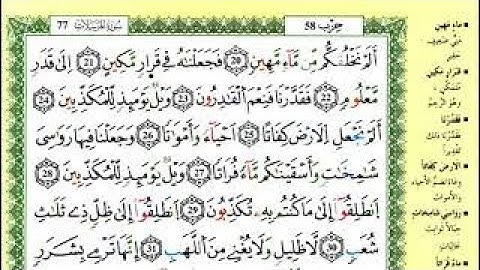 سُورَةُ المُرْسَلَات 77
حِزْب 58
أَلَمْ نَخْلُقكُّم مِّن مَّآءٍ مَّهِينٍ 20 فَجَعَلْنَٰهُ فِى قَرَارٍ مَّكِينٍ 21 إِلَىٰ قَدَرٍ
مَّعْلُومٍ 22 فَقَدَرْنَا فَنِعْمَ ٱلْقَٰدِرُونَ 23 وَيْلٌ يَوْمَئِذٍ لِّلْمُكَذِّبِينَ 24
أَلَمْ نَجْعَلِ ٱلْأَرْضَ كِفَاتًا 25 أَحْيَآءً وَأَمْوَٰتًا 26 وَجَعَلْنَا فِيهَا رَوَٰسِىَ
شَٰمِخَٰتٍ وَأَسْقَيْنَٰكُم مَّآءً فُرَاتًا 27 وَيْلٌ يَوْمَئِذٍ لِّلْمُكَذِّبِينَ 28
ٱنطَلِقُوٓا۟ إِلَىٰ مَا كُنتُم بِهِۦ تُكَذِّبُونَ 29 ٱنطَلِقُوٓا۟ إِلَىٰ ظِلٍّ ذِى ثَلَٰثِ
شُعَبٍ 30 لَّا ظَلِيلٍ وَلَا يُغْنِى مِنَ ٱللَّهَبِ 31 إِنَّهَا تَرْمِى بِشَرَرٍ
ماءٍ مَهِين
قَرارٍ مَكين
فَقَدَرْنا
فقدّرنا ذلك
تقديراً
الأرض كِفاتاً
وعاءً تضمّ الأحياء
والأموات
رواسي شامخات
جبالاً ثوابت
عاليات
ماءً فُراتاً